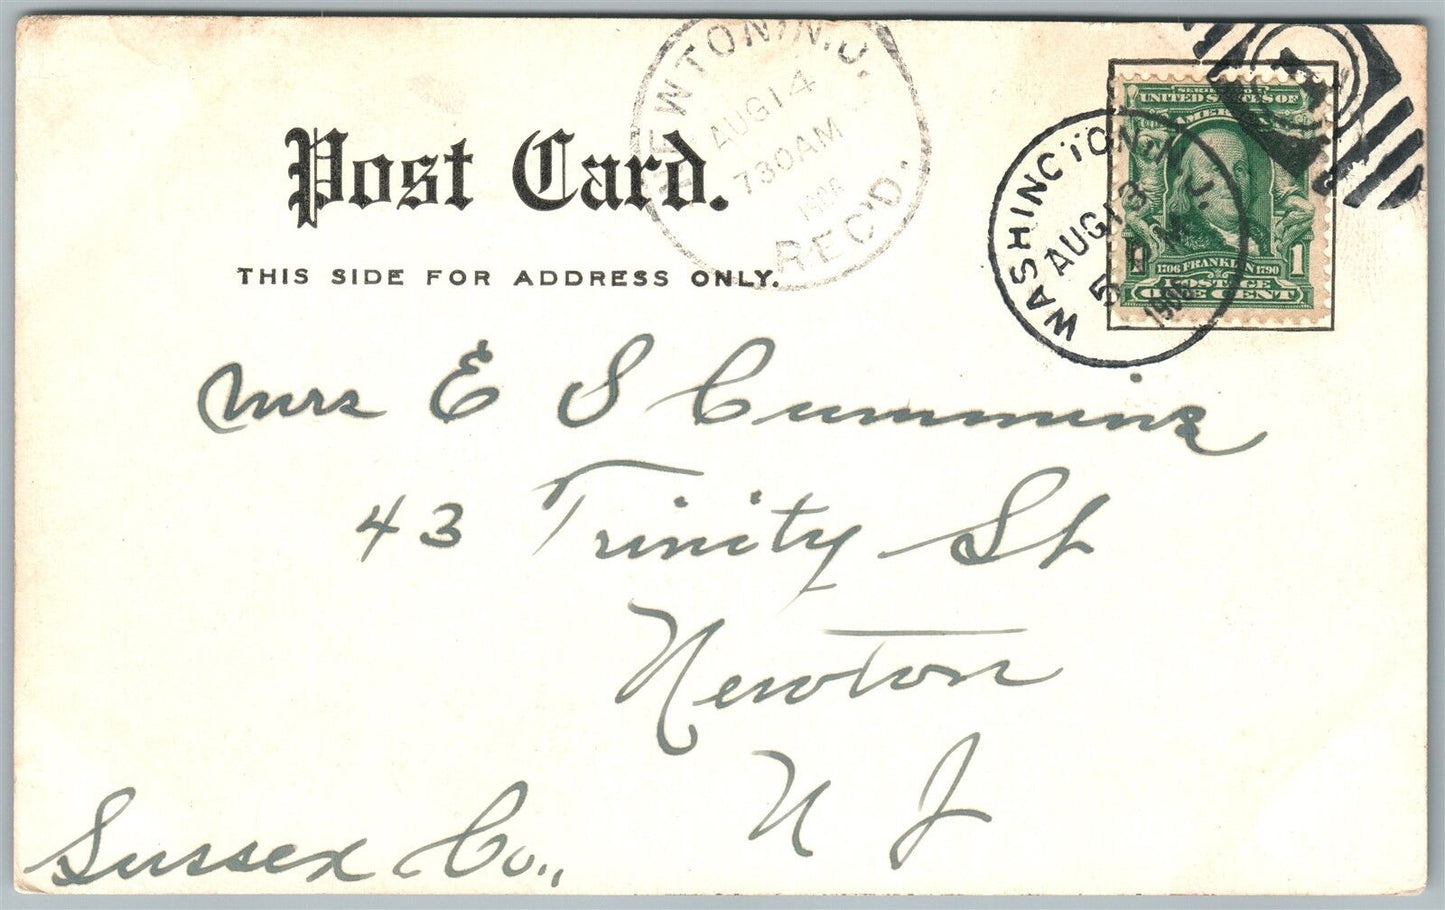 NEWTON, N.J.
AUG 14
730 AM
1906
REC'D.
WASHINGTON, N.J.
AUG 13
5 PM
SERIES 1902
UNITED STATES OF
AMERICA
1706 FRANKLIN 1790
1 1
POSTAGE
ONE CENT
Post Card.
THIS SIDE FOR ADDRESS ONLY.
Mrs E S Cummins
43 Trinity St
Newton
N J
Sussex Co.,